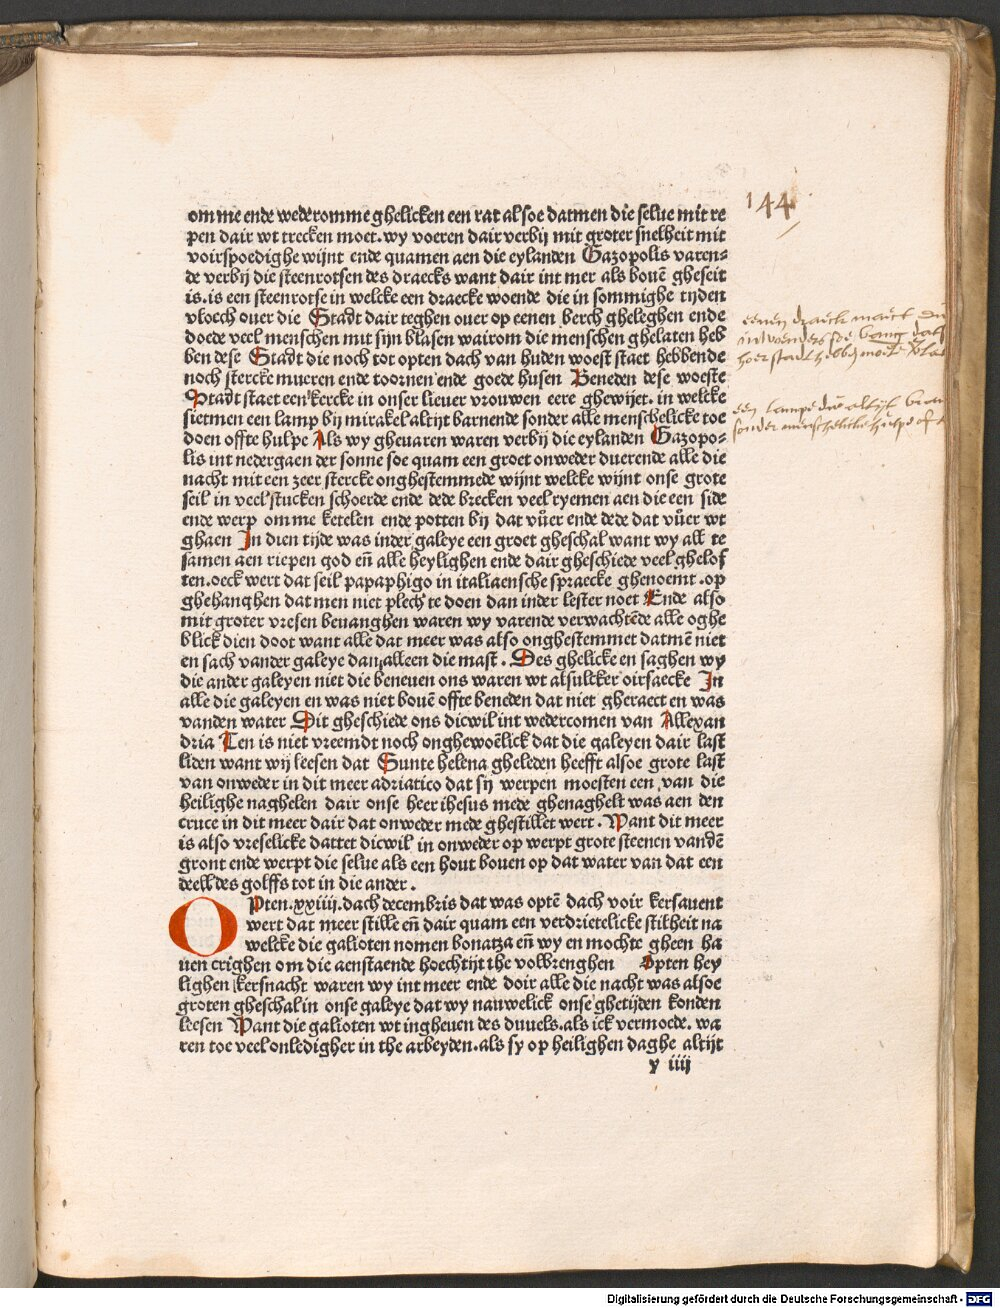 144
om me ende wederomme ghelicken een rat alsoe datmen die selue mit re
pen dair wt trecken moet. wy voeren dair verbij mit groter snelheit mit
voirspoedighe wijnt ende quamen aen die eylanden Gazopolis varen-
de verbij die steenrotsen des draecks want dair int mer als bouē gheseit
is. is een steenrotse in welcke een draecke woende die in sommighe tyden
vloech ouer die Stadt dair teghen ouer op eenen berch gheleghen ende
doede veel menschen mit sijn blasen wairom die menschen ghelaten heb
ben dese Stadt die noch tot opten dach van huden woest staet hebbende
noch stercke mueren ende toornen ende goede husen Beneden dese woeste
Stadt staet een kercke in onser lieuer vrouwen eere ghewijet. in welcke
sietmen een lamp bij mirakel altijt barnende sonder alle menschelicke toe
doen offte hulpe Als wy gheuaren waren verbij die eylanden Gazopo-
lis int nedergaen der sonne soe quam een groet onweder duerende alle die
nacht mit een zeer stercke onghestemmede wijnt welcke wijnt onse grote
seil in veel stucken schoerde ende dede brecken veel ryemen aen die een side
ende werp omme ketelen ende potten bij dat vuͤer ende dede dat vuͤer wt
ghaen In dien tijde was inder galeye een groet gheschal want wy all te
samen aen riepen god eñ alle heylighen ende dair gheschiede veel ghelof
ten. oeck wert dat seil papaphigo in italiaensche spraecke ghenoemt. op
ghehanghen dat men niet plech te doen dan inder lester noet Ende also
mit groter vresen beuanghen waren wy varende verwachtēde alle oghe
blick dien doot want alle dat meer was also onghestemmet datmē niet
en sach vander galeye dan alleen die mast. Des ghelicke en saghen wy
die ander galeyen niet die beneuen ons waren wt alsulcker oirsaecke In
alle die galeyen en was niet bouē offte beneden dat niet gheraect en was
vanden water Dit gheschiede ons dicwil int wedercomen van Allexan
dria Ten is niet vreemdt noch onghewoēlick dat die galeyen dair last
liden want wij leesen dat Sunte helena gheleden heefft alsoe grote last
van onweder in dit meer adriatico dat sij werpen moesten een van die
heilighe naghelen dair onse heer ihesus mede ghenaghelt was aen den
cruce in dit meer dair dat onweder mede ghestillet wert. Want dit meer
is also vreselicke dattet dicwil in onweder op werpt grote steenen vandē
gront ende werpt die selue als een hout bouen op dat water van dat een
deell des golffs tot in die ander.
OPten. xxiiii. dach decembris dat was optē dach voir kersauent
wert dat meer stille eñ dair quam een verdrietelicke stilheit na
welcke die galioten nomen bonatza eñ wy en mochtē gheen ha
uen crighen om die aenstaende hoechtijt the volbrenghen Opten hey
lighen kersnacht waren wy int meer ende doir alle die nacht was alsoe
groten gheschal in onse galeye dat wy nauwelick onse ghetijden konden
leesen Want die galioten wt ingheuen des duuels. als ick vermoede. wa
ren toe veel onledigher in the arbeyden. als sy op heilighen daghe altijt
y iiij
eenen draeck
een lampe die altijt
sonder menschelicke hulpe oft
Digitalisierung gefördert durch die Deutsche Forschungsgemeinschaft - DFG